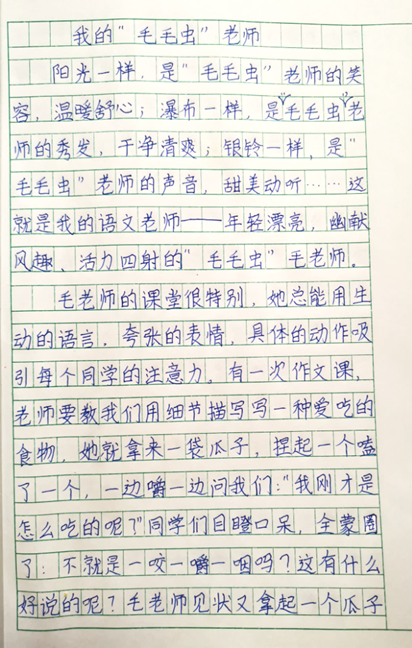 我的“毛毛虫”老师
阳光一样，是“毛毛虫”老师的笑
容，温暖舒心；瀑布一样，是“毛毛虫”老
师的秀发，干净清爽；银铃一样，是“
毛毛虫”老师的声音，甜美动听……这
就是我的语文老师——年轻漂亮，幽默
风趣、活力四射的“毛毛虫”毛老师。
毛老师的课堂很特别，她总能用生
动的语言，夸张的表情，具体的动作吸
引每个同学的注意力。有一次作文课，
老师要教我们用细节描写写一种爱吃的
食物，她就拿来一袋瓜子，捏起一个嗑
了一个，一边嚼一边问我们：“我刚才是
怎么吃的呢？”同学们目瞪口呆，全蒙圈
了：不就是一咬一嚼一咽吗？这有什么
好说的呢？毛老师见状又拿起一个瓜子